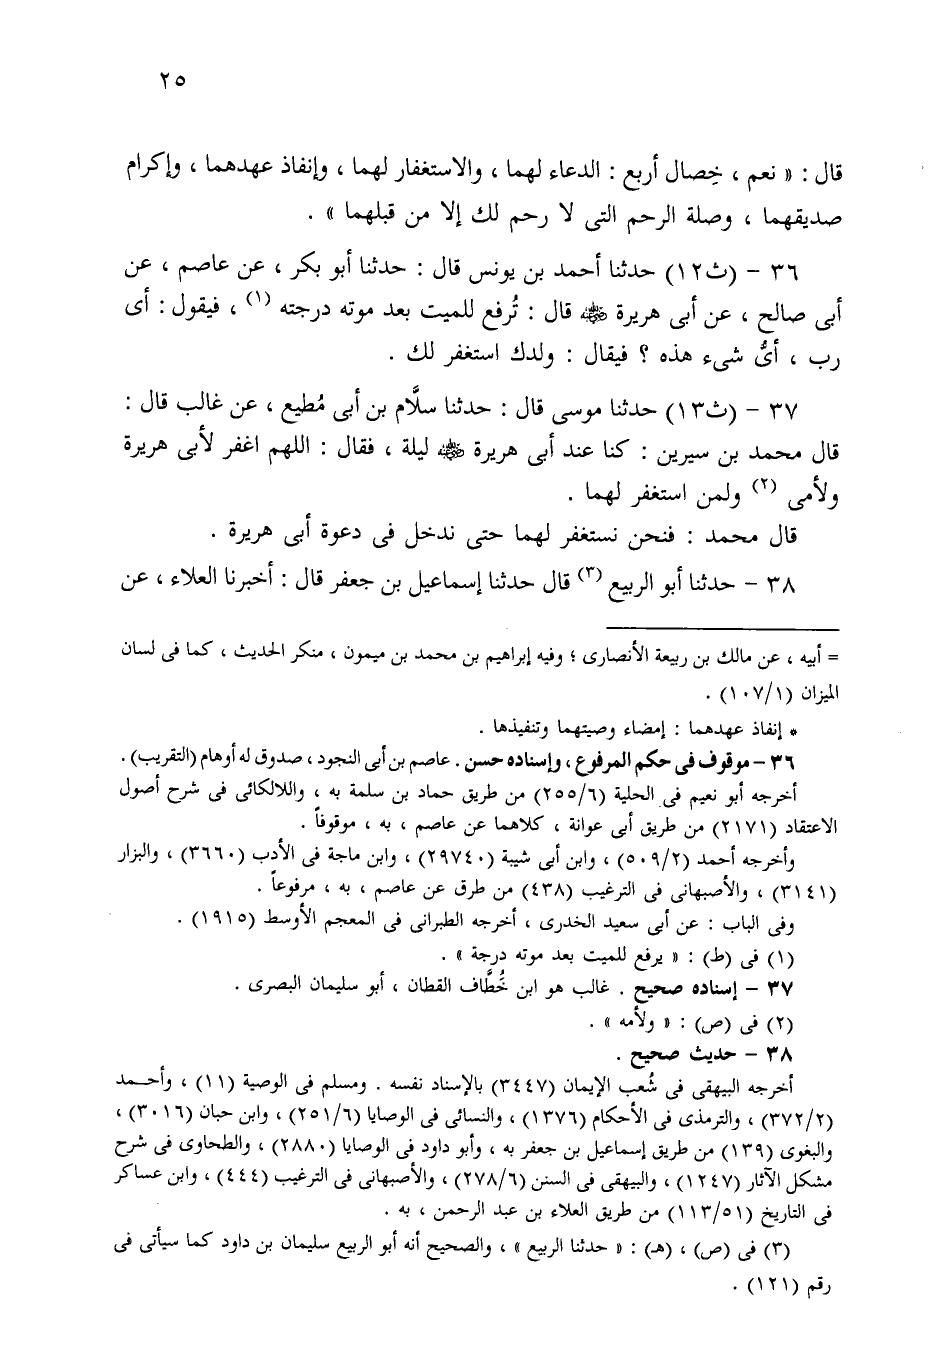 ٢٥
قال : « نعم ، خِصال أربع : الدعاء لهما ، والاستغفار لهما ، وإنفاذ عهدهما ، وإكرام
صديقهما ، وصلة الرحم التى لا رحم لك إلا من قبلهما » .
٣٦ – (ث١٢) حدثنا أحمد بن يونس قال : حدثنا أبو بكر ، عن عاصم ، عن
أبى صالح ، عن أبى هريرة ﵁ قال : تُرفع للميت بعد موته درجته (١) ، فيقول : أى
رب ، أىُّ شىء هذه ؟ فيقال : ولدك استغفر لك .
٣٧ – (ث١٣) حدثنا موسى قال : حدثنا سلَّام بن أبى مُطيع ، عن غالب قال :
قال محمد بن سيرين : كنا عند أبى هريرة ﵁ ليلة ، فقال : اللهم اغفر لأبى هريرة
ولأمى (٢) ولمن استغفر لهما .
قال محمد : فنحن نستغفر لهما حتى ندخل فى دعوة أبى هريرة .
٣٨ – حدثنا أبو الربيع (٣) قال حدثنا إسماعيل بن جعفر قال : أخبرنا العلاء ، عن
= أبيه ، عن مالك بن ربيعة الأنصارى ؛ وفيه إبراهيم بن محمد بن ميمون ، منكر الحديث ، كما فى لسان
الميزان (١٠٧/١) .
* إنفاذ عهدهما : إمضاء وصيتهما وتنفيذها .
٣٦ – موقوف فى حكم المرفوع ، وإسناده حسن . عاصم بن أبى النجود ، صدوق له أوهام (التقريب) .
أخرجه أبو نعيم فى الحلية (٢٥٥/٦) من طريق حماد بن سلمة به ، واللالكائى فى شرح أصول
الاعتقاد (٢١٧١) من طريق أبى عوانة ، كلاهما عن عاصم ، به ، موقوفاً .
وأخرجه أحمد (٥٠٩/٢) ، وابن أبى شيبة (٢٩٧٤٠) ، وابن ماجة فى الأدب (٣٦٦٠) ، والبزار
(٣١٤١) ، والأصبهانى فى الترغيب (٤٣٨) من طرق عن عاصم ، به ، مرفوعاً .
وفى الباب : عن أبى سعيد الخدرى ، أخرجه الطبرانى فى المعجم الأوسط (١٩١٥) .
(١) فى (ط) : « يرفع للميت بعد موته درجة » .
٣٧ – إسناده صحيح . غالب هو ابن خُطَّاف القطان ، أبو سليمان البصرى .
(٢) فى (ص) : « ولأمه » .
٣٨ – حديث صحيح .
أخرجه البيهقى فى شُعب الإيمان (٣٤٤٧) بالإسناد نفسه . ومسلم فى الوصية (١١) ، وأحمد
(٣٧٢/٢) ، والترمذى فى الأحكام (١٣٧٦) ، والنسائى فى الوصايا (٢٥١/٦) ، وابن حبان (٣٠١٦) ،
والبغوى (١٣٩) من طريق إسماعيل بن جعفر به ، وأبو داود فى الوصايا (٢٨٨٠) ، والطحاوى فى شرح
مشكل الآثار (١٢٤٧) ، والبيهقى فى السنن (٢٧٨/٦) ، والأصبهانى فى الترغيب (٤٤٤) ، وابن عساكر
فى التاريخ (١١٣/٥١) من طريق العلاء بن عبد الرحمن ، به .
(٣) فى (ص) ، (هـ) : « حدثنا الربيع » ، والصحيح أنه أبو الربيع سليمان بن داود كما سيأتى فى
رقم (١٢١) .